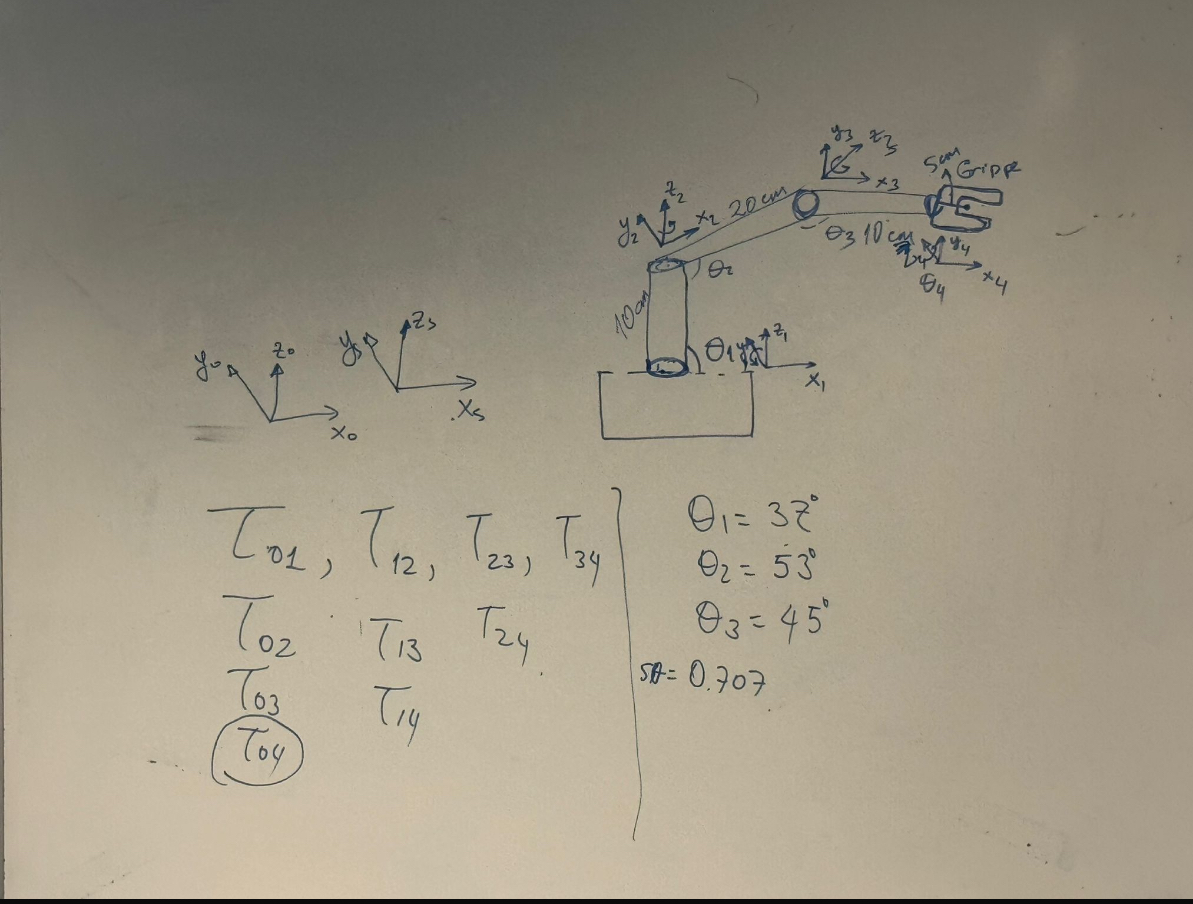 y₃ z₃
x₃
5cm Gripper
z₂
y₂ x₂ 20cm
θ₃ 10cm
y₄
x₄
θ₄
θ₂
10cm
y₀ z₀
x₀
y₅ z₅
x₅
θ₁ z₁
x₁
T₀₁, T₁₂, T₂₃, T₃₄
T₀₂ T₁₃ T₂₄
T₀₃ T₁₄
T₀₄
θ₁ = 37°
θ₂ = 53°
θ₃ = 45°
sθ = 0.707